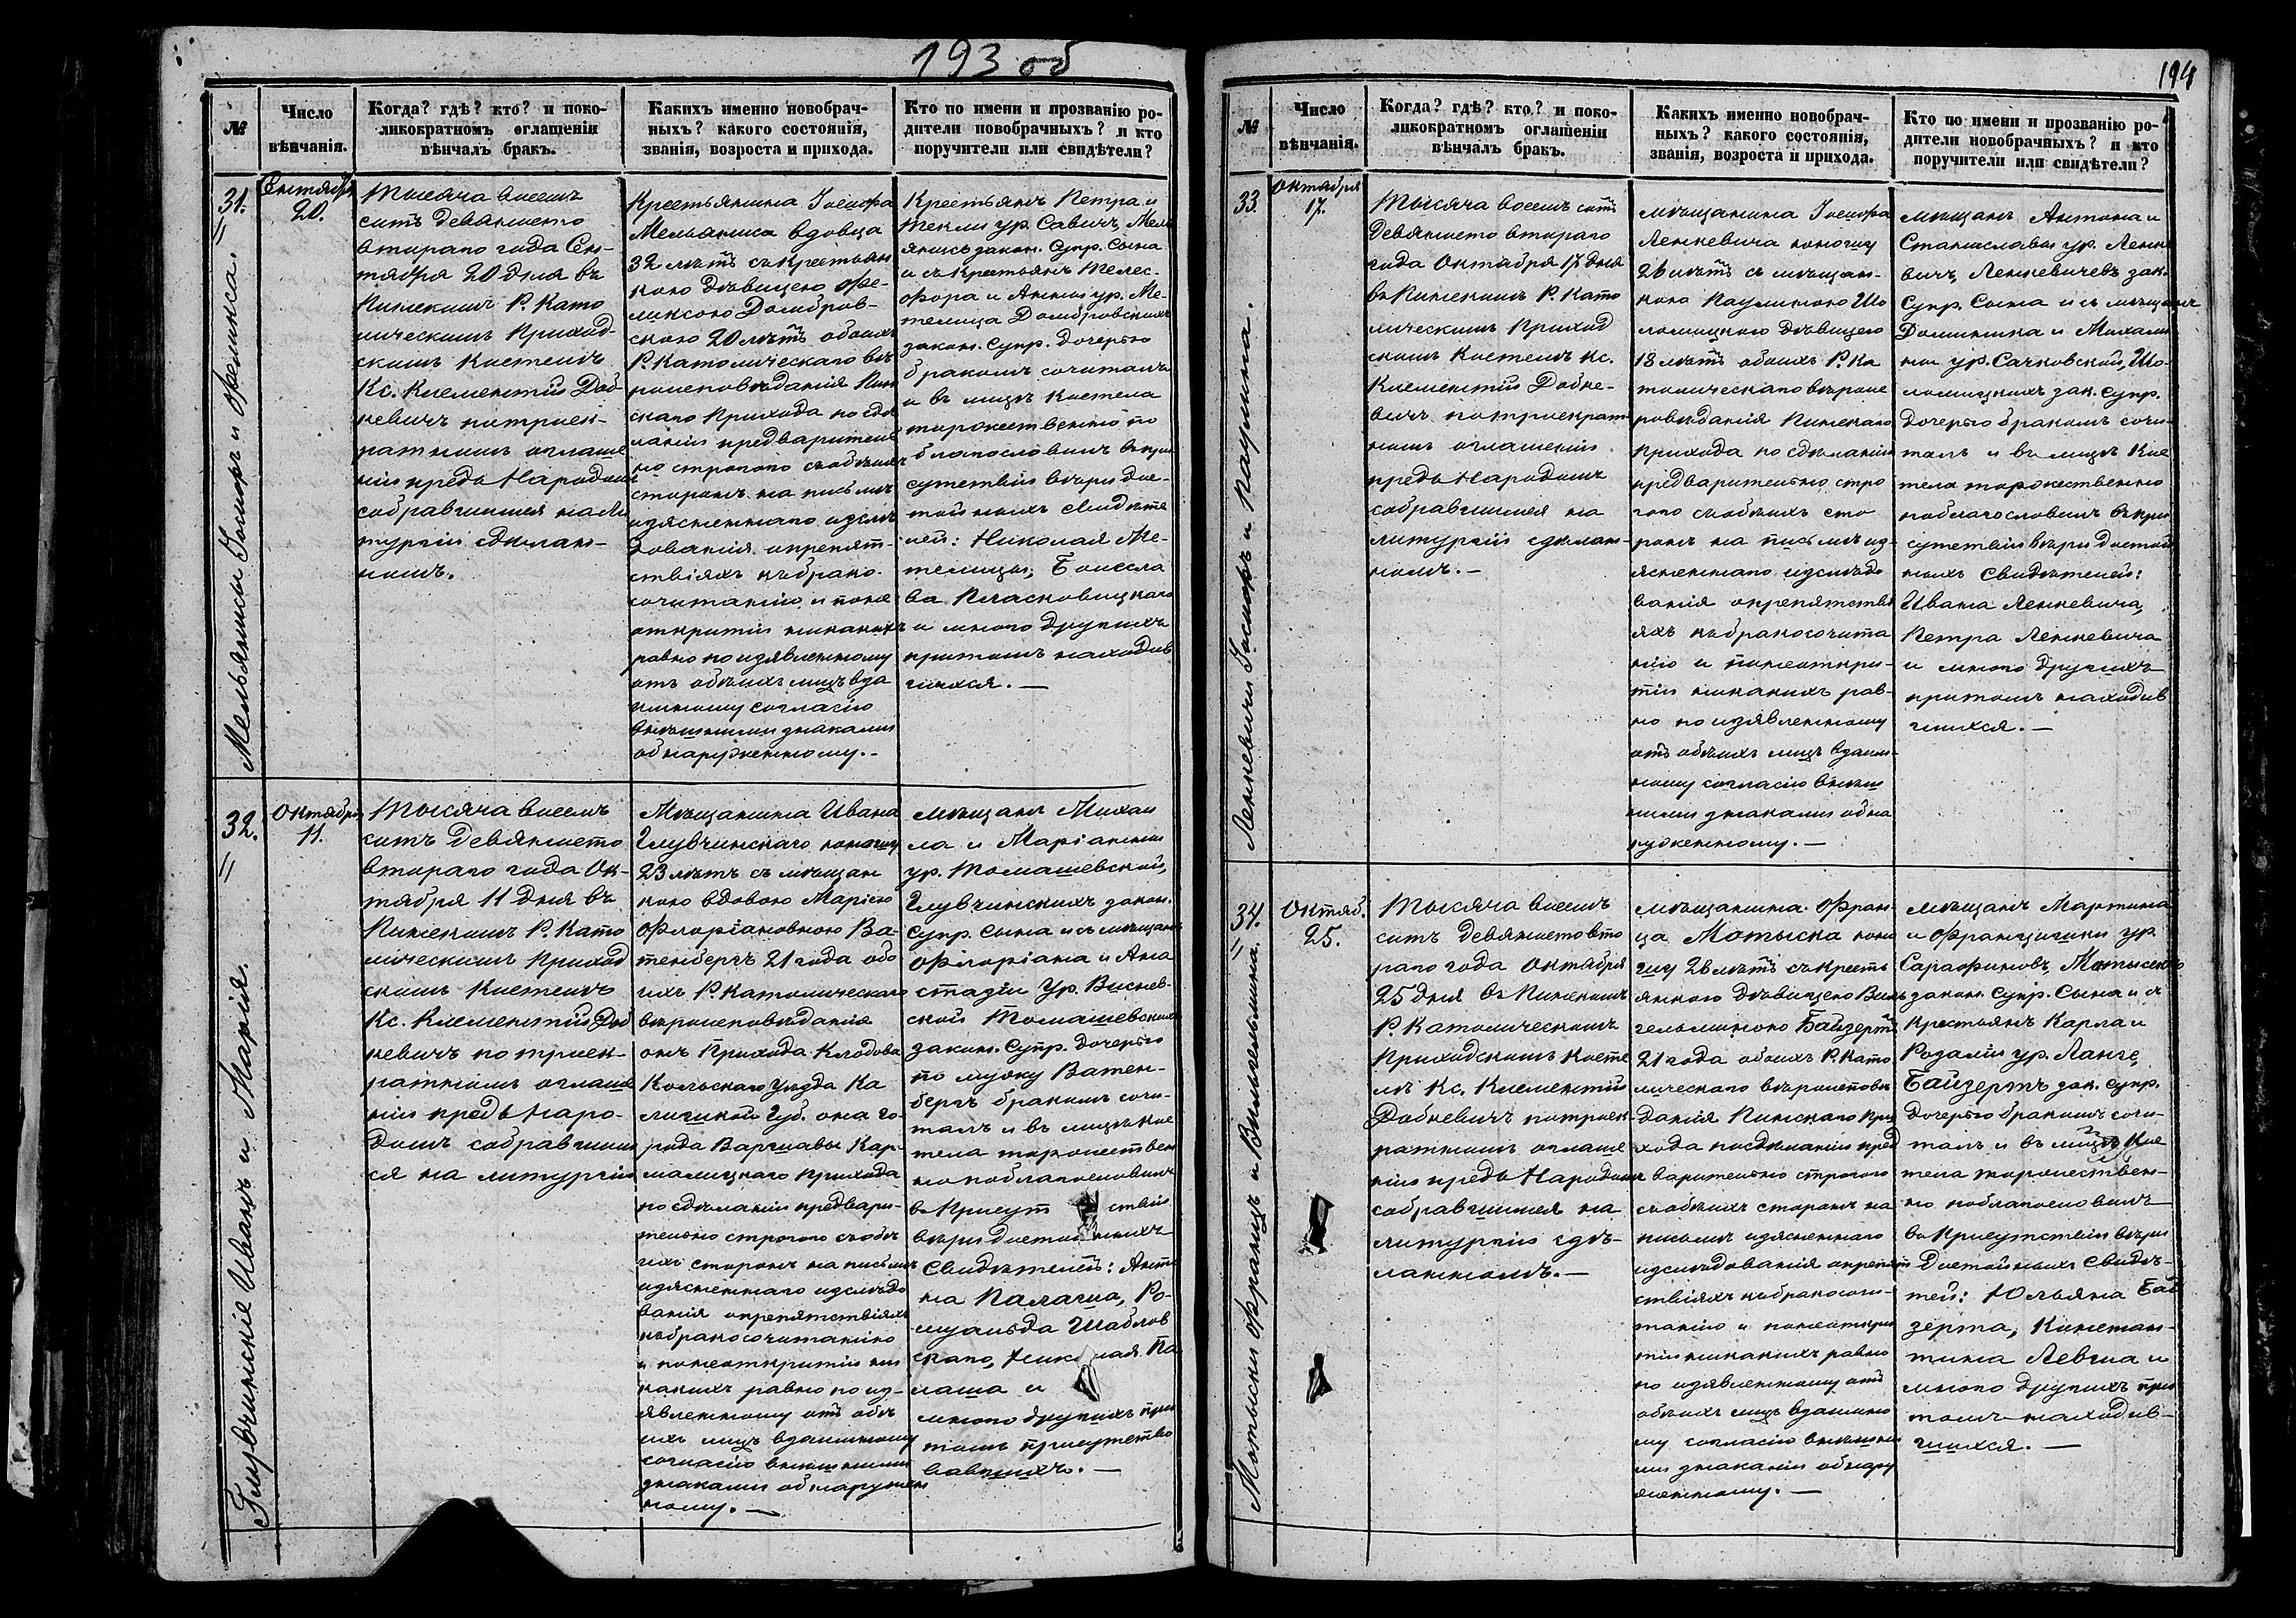 193 об
№
Число
вѣнчанія.
Когда? гдѣ? кто? и поко-
ликократномъ оглашеніи
вѣнчалъ бракъ.
Какихъ именно новобрач-
ныхъ? какого состоянія,
званія, возроста и прихода.
Кто по имени и прозванію ро-
дители новобрачныхъ? и кто
поручители или свидѣтели?
31.
Мельянисы Іосифъ и Феликса.
Сентября
20.
Тысяча восемь
сотъ девяносто
втораго года Сен-
тября 20 дня въ
Пинскимъ Р. Като
лическимъ Приход-
скимъ Костелѣ
Кс. Клементій Доб-
кевичъ потроек-
ратномъ оглаше
ніи предъ Народомъ
собравшимся на Ли
тургіи сдѣлан-
номъ.
Крестьянина Іосифа
Мельяниса вдовца
32 лѣтъ съ крестьян
кою дѣвицею Фе-
ликсою Домбров-
скою 20 лѣтъ обоихъ
Р. Католическаго вѣ
роисповѣданія Пин
скаго Прихода по сдѣ
ланіи предваритель
но строгого съ обѣихъ
сторонъ на письмѣ
изясненнаго изслѣ
дованія о препят-
ствіяхъ къ брако-
сочитанію и поне
открытіи никакихъ
равно по изявленному
отъ обѣихъ лицъ вза
имному согласію
внѣшними знаками
обнаруженному.-
Крестьянъ Петра и
Текли ур. Савичъ, Мель
янисъ закон. Супр. Сына
и съ Крестьянъ Телес-
фора и Анны ур. Ме-
телица Домбровскихъ
закон. Супр. Дочерью
бракомъ сочиталъ
и въ лицѣ Костела
торжественно по
благословилъ въ при
сутствіи вѣры дос-
тойныхъ Свидѣте
лей: Николая Ме-
телицы, Болесла
ва Пласковицкаго
и много другихъ
притомъ находив
шихся. —
32.
Глувчинскіе Иванъ и Марія.
Октября
11.
Тысяча восемь
сотъ Девяносто
втораго года Ок-
тября 11 дня въ
Пинскимъ Р. Като
лическимъ Приход
скимъ Костелѣ
Кс. Клементій Доб
кевичъ по троек-
ратномъ оглаше
ніи предъ Наро-
домъ собравшим
ся на литургіи
Мѣщанина Ивана
Глувчинскаго юношу
23 лѣтъ съ мѣщан
кою вдовою Маріею
Флоріановною Ва-
тенбергъ 21 года обо
ихъ Р. Католическаго
вѣроисповѣданія
онъ Прихода Клодова
Кольскаго уѣзда Ка
лишской Губ. она го-
рода Варшавы Кар-
малицкаго прихода
по сдѣланіи предвари-
тельно строгого съ обѣ
ихъ сторонъ на письмѣ
изясненнаго изслѣдо
ванія о препятствіяхъ
къ бракосочитанію
и понеоткрытіи ни
какихъ равно по из-
явленному отъ обѣ
ихъ лицъ взаимному
согласію внѣшними
знаками обнаружен
ному. —
мѣщанъ Михаи
ла и Маріанны
ур. Томашевской,
Глувчинскихъ закон.
Супр. Сына и съ мѣщанъ
Флоріана и Ана
стазіи Ур. Виснев-
ской Томашевскихъ
закон. Супр. Дочерью
по мужу Ватен-
бергъ бракомъ сочи-
талъ и въ лицѣ Кос
тела торжествен
но поблагословилъ
въ Присут ствіи
вѣры достой ныхъ
Свидѣтелей: Анто
на Палаша, Ро-
муальда Шаблов
скаго, Николая Па
лаша и
много другихъ при
томъ присутство
вавшихъ. —
194
№
Число
вѣнчанія.
Когда? гдѣ? кто? и поко-
ликократномъ оглашеніи
вѣнчалъ бракъ.
Какихъ именно новобрач-
ныхъ? какого состоянія,
званія, возроста и прихода.
Кто по имени и прозванію ро-
дители новобрачныхъ? и кто
поручители или свидѣтели?
33.
Ленкевичи Іосифъ и Паулина.
Октября
17.
Тысяча восемь сотъ
Девяносто втораго
года Октября 17 дня
въ Пинскимъ Р. Като
лическимъ Приход
скимъ Костелѣ Кс.
Клементій Добке-
вичъ потроекрат
номъ оглашеніи
предъ Народомъ
собравшимся на
литургіи сдѣлан-
номъ. —
мѣщанина Іосифа
Ленкевича юношу
26 лѣтъ съ мѣщан-
кою Паулиною Шо
ломицкою дѣвицею
18 лѣтъ обоихъ Р. Ка
толическаго вѣроис
повѣданія Пинскаго
прихода по сдѣланіи
предварительно стро
гого съ обѣихъ сто
ронъ на письмѣ из-
ясненнаго изслѣдо
ванія о препятстві
яхъ къ бракосочита
нію и понеоткры-
тіи никакихъ рав-
но по изявленному
отъ обѣихъ лицъ взаим-
ному согласію внѣш
ними знаками обна
руженному. —
мѣщанъ Антона и
Станиславы ур. Ленке
вичъ, Ленкевичевъ зак.
Супр. Сына и съ мѣщанъ
Доминика и Михали
ны ур. Сачковской, Шо-
ломицкихъ зак. Супр.
Дочерью бракомъ сочи-
талъ и въ лицѣ Кос
тела торжественно
поблагословилъ въ при
сутствіи вѣры достой
ныхъ Свидѣтелей:
Ивана Ленкевича,
Петра Ленкевича
и много другихъ
притомъ находив
шихся. —
34.
Мотыски Францъ и Вильгельмина.
Октяб.
25.
Тысяча восемь
сотъ девяносто вто
раго года Октября
25 дня въ Пинскимъ
Р. Католическимъ
Приходскимъ Косте
лѣ Кс. Клементій
Добкевичъ потроек-
ратномъ оглаше
ніи предъ Народомъ
собравшимся на
литургію сдѣ-
ланномъ. —
мѣщанина Фран-
ца Мотыска юно
шу 26 лѣтъ съ кресть
янкою дѣвицею Виль
гельминою Байзертъ
21 года обоихъ Р. Като
лическаго вѣроисповѣ
данія Пинскаго При
хода по сдѣланіи пред
варительно строгого
съ обѣихъ сторонъ на
письмѣ изясненнаго
изслѣдованія о препят
ствіяхъ къ бракосочи-
танію и понеоткры
тіи никакихъ равно
по изявленному отъ
обѣихъ лицъ взаимно
му согласію внѣшни
ми знаками обнару
женному. —
мѣщанъ Мартина
и Францишки ур.
Сарафиновъ, Мотыско
закон. Супр. Сына и съ
Крестьянъ Карла и
Розаліи ур. Ланге,
Байзертъ зак. Супр.
Дочерью бракомъ сочи-
талъ и въ лицѣ Кос
тела торжествен-
но поблагословилъ
въ Присутствіи вѣры
Достойныхъ Свидѣ-
тей: Юльяна Бай
зерта, Констан-
тина Левша и
много другихъ при
томъ находив-
шихся. —